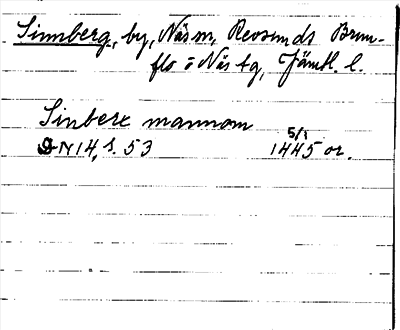 Sinnberg, by, Näs sn, Revsunds Brun-
flo o Näs tg, Jämtl. l.
Sinberx mannom
DN 14, s. 53 5/1 1445 or.